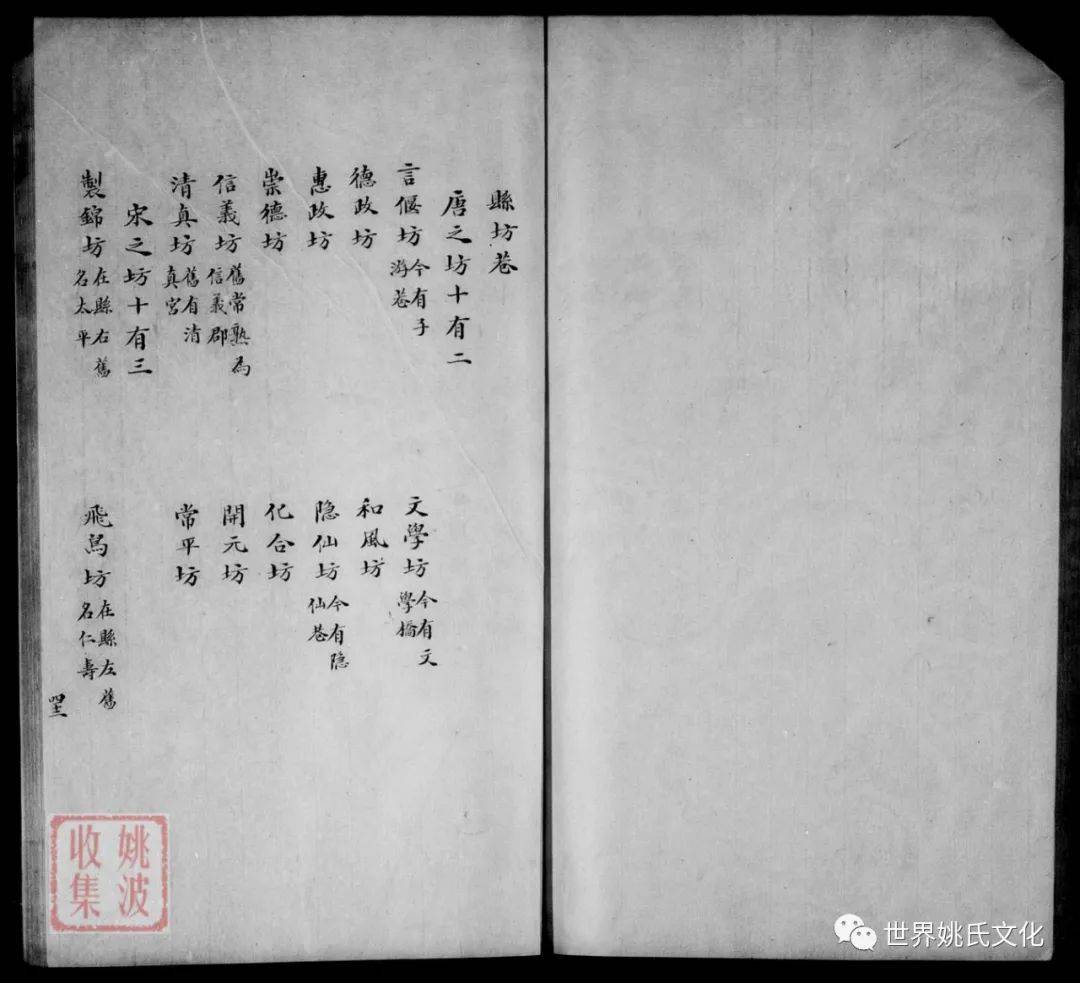 縣坊巷
唐之坊十有二
言偃坊 今有子游巷 文學坊 今有文學橋
德政坊 和風坊
惠政坊 隐仙坊 今有隐仙巷
崇德坊 化合坊
信義坊 舊常熟為信義郡 開元坊
清真坊 舊有清真宮 常平坊
宋之坊十有三
製錦坊 在縣右舊名太平 飛鳧坊 在縣左舊名仁壽
四十三
姚波
收集
世界姚氏文化